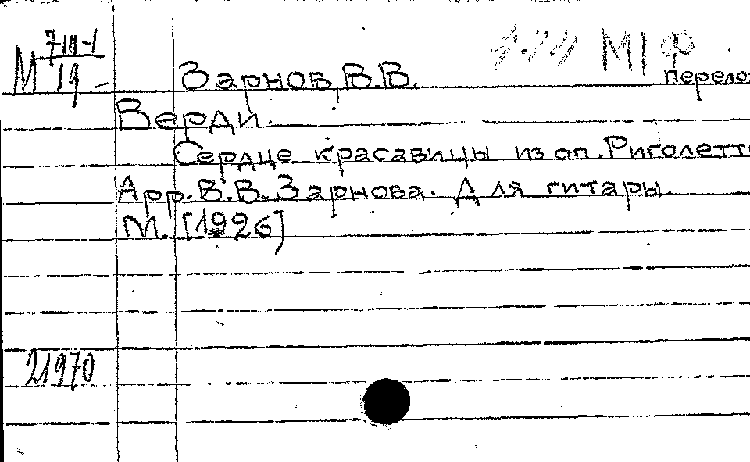 М 7-111-1
19-
М1Ф
Зарнов В.В. перело
Верди.
Сердце красавицы из оп. Риголетто
Арр. В.В. Зарнова. Для гитары.
М. [1926]
21970